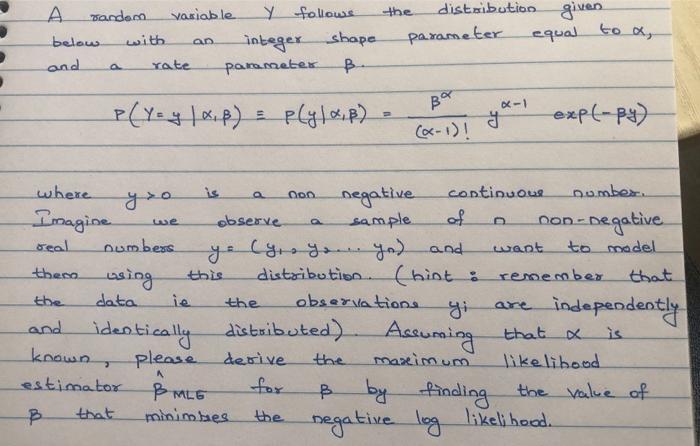 A random variable Y follows the distribution given
below with an integer shape parameter equal to α,
and a rate parameter β.
P(Y=y | α,β) ≡ p(y|α,β) = β^α / (α-1)! y^(α-1) exp(-βy)
where y>0 is a non negative continuous number.
Imagine we observe a sample of n non-negative
real numbers y = (y₁, y₂... yn) and want to model
them using this distribution. (hint : remember that
the data is the observations yi are independently
and identically distributed). Assuming that α is
known, please derive the maximum likelihood
estimator β̂ MLE for β by finding the value of
β that minimises the negative log likelihood.